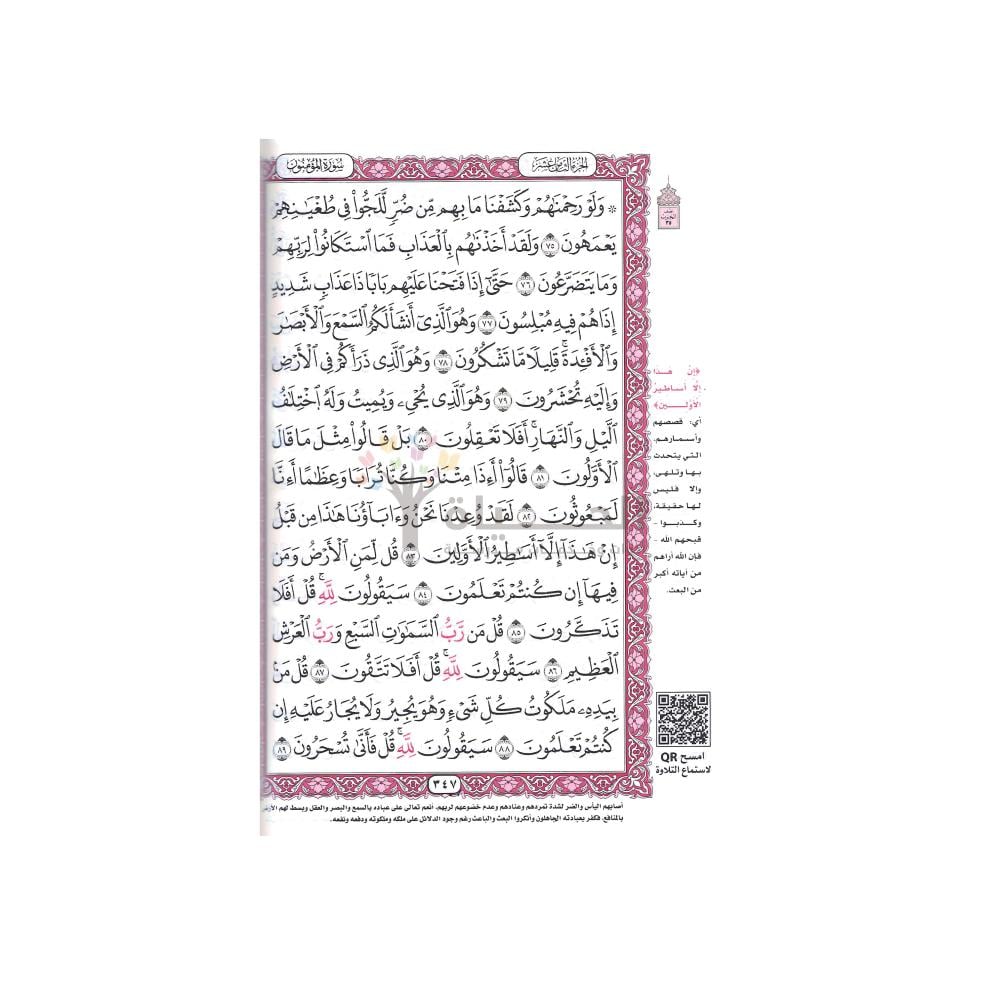 سورة المؤمنون
الجزء الثامن عشر
۞ وَلَوْ رَحِمْنَٰهُمْ وَكَشَفْنَا مَا بِهِم مِّن ضُرٍّ لَّلَجُّوا۟ فِى طُغْيَٰنِهِمْ
يَعْمَهُونَ ٧٥ وَلَقَدْ أَخَذْنَٰهُم بِٱلْعَذَابِ فَمَا ٱسْتَكَانُوا۟ لِرَبِّهِمْ
وَمَا يَتَضَرَّعُونَ ٧٦ حَتَّىٰٓ إِذَا فَتَحْنَا عَلَيْهِم بَابًا ذَا عَذَابٍ شَدِيدٍ
إِذَا هُمْ فِيهِ مُبْلِسُونَ ٧٧ وَهُوَ ٱلَّذِىٓ أَنشَأَ لَكُمُ ٱلسَّمْعَ وَٱلْأَبْصَٰرَ
وَٱلْأَفْـِٔدَةَ ۚ قَلِيلًا مَّا تَشْكُرُونَ ٧٨ وَهُوَ ٱلَّذِى ذَرَأَكُمْ فِى ٱلْأَرْضِ
وَإِلَيْهِ تُحْشَرُونَ ٧٩ وَهُوَ ٱلَّذِى يُحْىِۦ وَيُمِيتُ وَلَهُ ٱخْتِلَٰفُ
ٱلَّيْلِ وَٱلنَّهَارِ ۚ أَفَلَا تَعْقِلُونَ ٨٠ بَلْ قَالُوا۟ مِثْلَ مَا قَالَ
ٱلْأَوَّلُونَ ٨١ قَالُوٓا۟ أَءِذَا مِتْنَا وَكُنَّا تُرَابًا وَعِظَٰمًا أَءِنَّا
لَمَبْعُوثُونَ ٨٢ لَقَدْ وُعِدْنَا نَحْنُ وَءَابَآؤُنَا هَٰذَا مِن قَبْلُ
إِنْ هَٰذَآ إِلَّآ أَسَٰطِيرُ ٱلْأَوَّلِينَ ٨٣ قُل لِّمَنِ ٱلْأَرْضُ وَمَن
فِيهَآ إِن كُنتُمْ تَعْلَمُونَ ٨٤ سَيَقُولُونَ لِلَّهِ ۚ قُلْ أَفَلَا
تَذَكَّرُونَ ٨٥ قُلْ مَن رَّبُّ ٱلسَّمَٰوَٰتِ ٱلسَّبْعِ وَرَبُّ ٱلْعَرْشِ
ٱلْعَظِيمِ ٨٦ سَيَقُولُونَ لِلَّهِ ۚ قُلْ أَفَلَا تَتَّقُونَ ٨٧ قُلْ مَنۢ
بِيَدِهِۦ مَلَكُوتُ كُلِّ شَىْءٍ وَهُوَ يُجِيرُ وَلَا يُجَارُ عَلَيْهِ إِن
كُنتُمْ تَعْلَمُونَ ٨٨ سَيَقُولُونَ لِلَّهِ ۚ قُلْ فَأَنَّىٰ تُسْحَرُونَ ٨٩
٣٤٧
﴿إِنْ هذا
إلا أساطيرُ
الأوّلــين﴾
أي: قصصهم
وأسمارهم،
التي يتحدث
بها وتلهى،
وإلا فليس
لها حقيقة،
وكذبـوا -
قبحهم الله -
فإن الله أراهم
من آياته أكبر
من البعث.
امسح QR
لاستماع التلاوة
أصابهم اليأس والضر لشدة تمردهم وعنادهم وعدم خضوعهم لربهم. أنعم تعالى على عباده بالسمع والبصر والعقل وبسط لهم
بالمنافع، فكفر بعبادته الجاهلون وأنكروا البعث والباعث رغم وجود الدلائل على ملكه وملكوته ودفعه ونفعه.